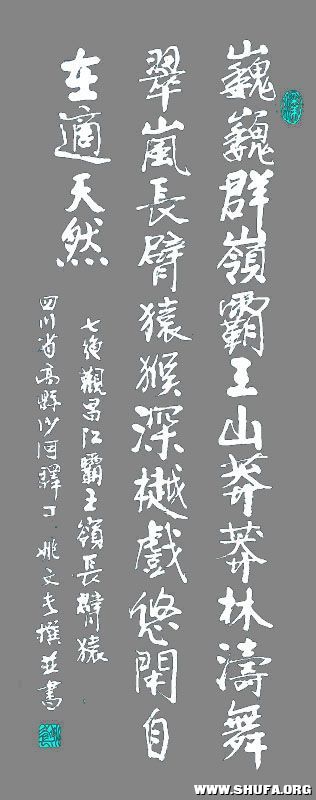 巍巍群嶺霸王山莽莽林濤舞
翠嵐長臂猿猴深樾戲悠閑自
在適天然
七絕觀昌江霸王嶺長臂猿
四川省高縣沙河驛丁 姚文撰並書
WWW.SHUFA.ORG